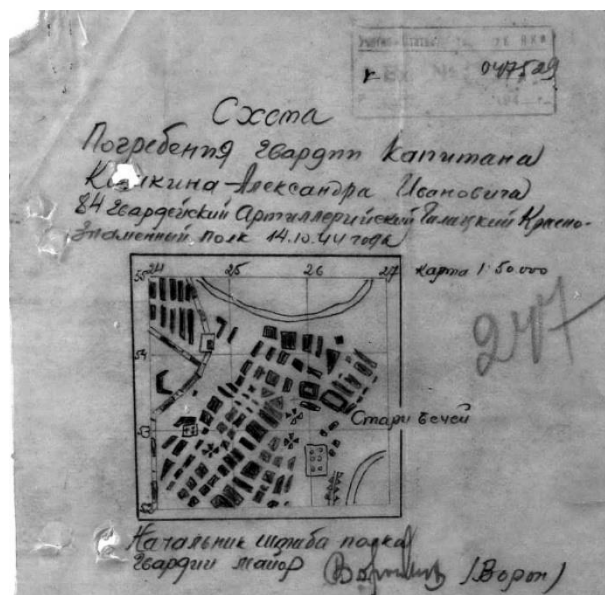 Вх. №
047529
Схема
Погребения гвардии капитана
Александра Ивановича
84 Гвардейский Артиллерийский Галацкий Красно-
знаменный полк 14.10.44 года
Карта 1:50.000
24 25 26 27
55
54
53
52
247
Стари бечей
Начальник штаба полка
Гвардии майор (Ворон)